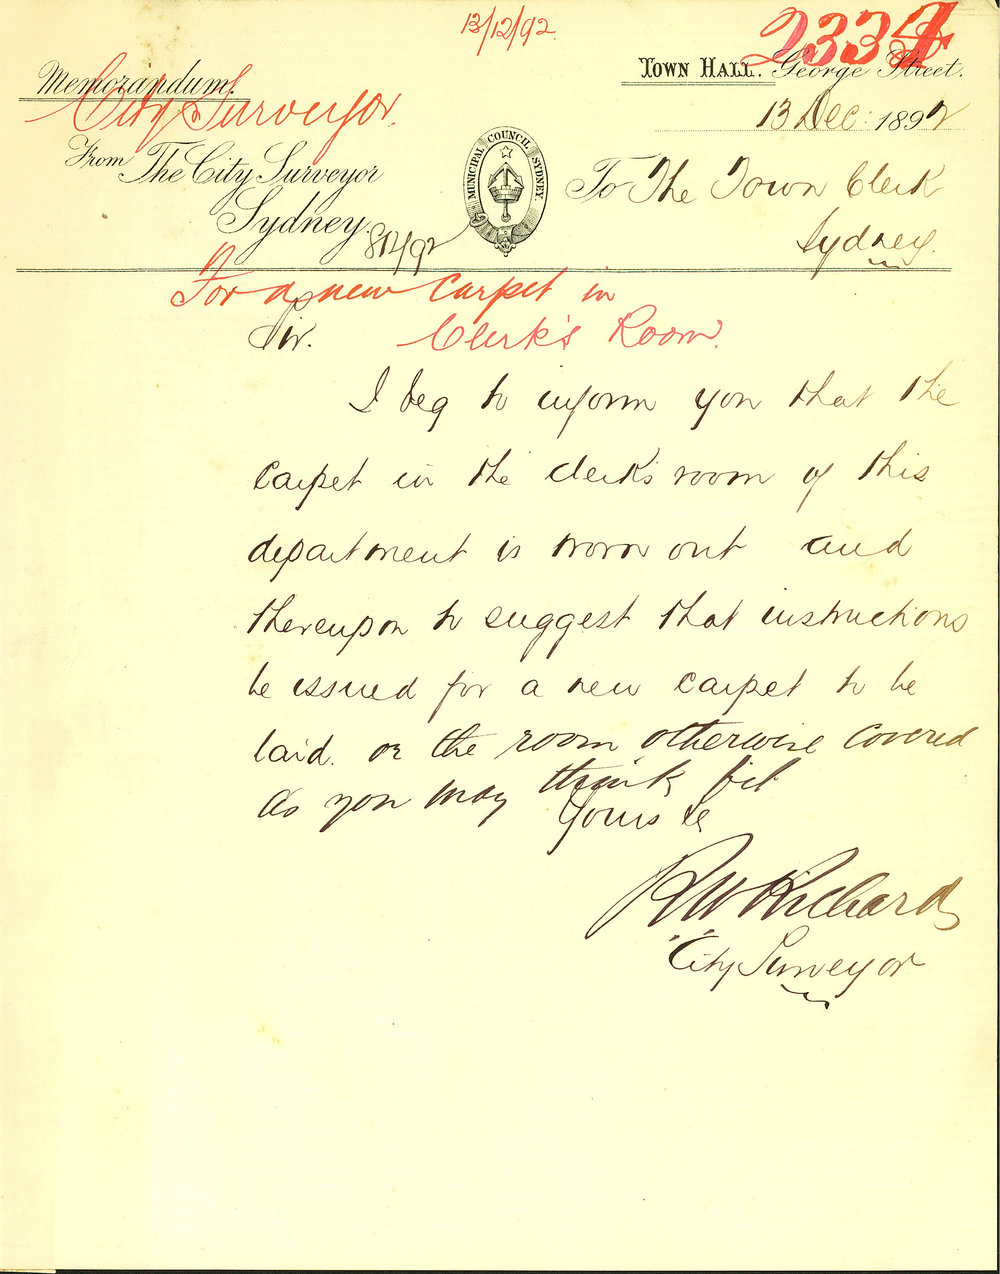 13/12/92
2334
Memorandum.
Town Hall. George Street.
City Surveyor.
13 Dec: 1892
From The City Surveyor
Sydney.
MUNICIPAL COUNCIL SYDNEY
To The Town Clerk
Sydney.
For a new Carpet in
Clerk's Room.
Sir.
I beg to inform you that the
carpet in the clerk's room of this
department is worn out and
thereupon to suggest that instructions
be issued for a new carpet to be
laid. or the room otherwise covered
as you may think fit
Yours &c
R W Richards
"City Surveyor